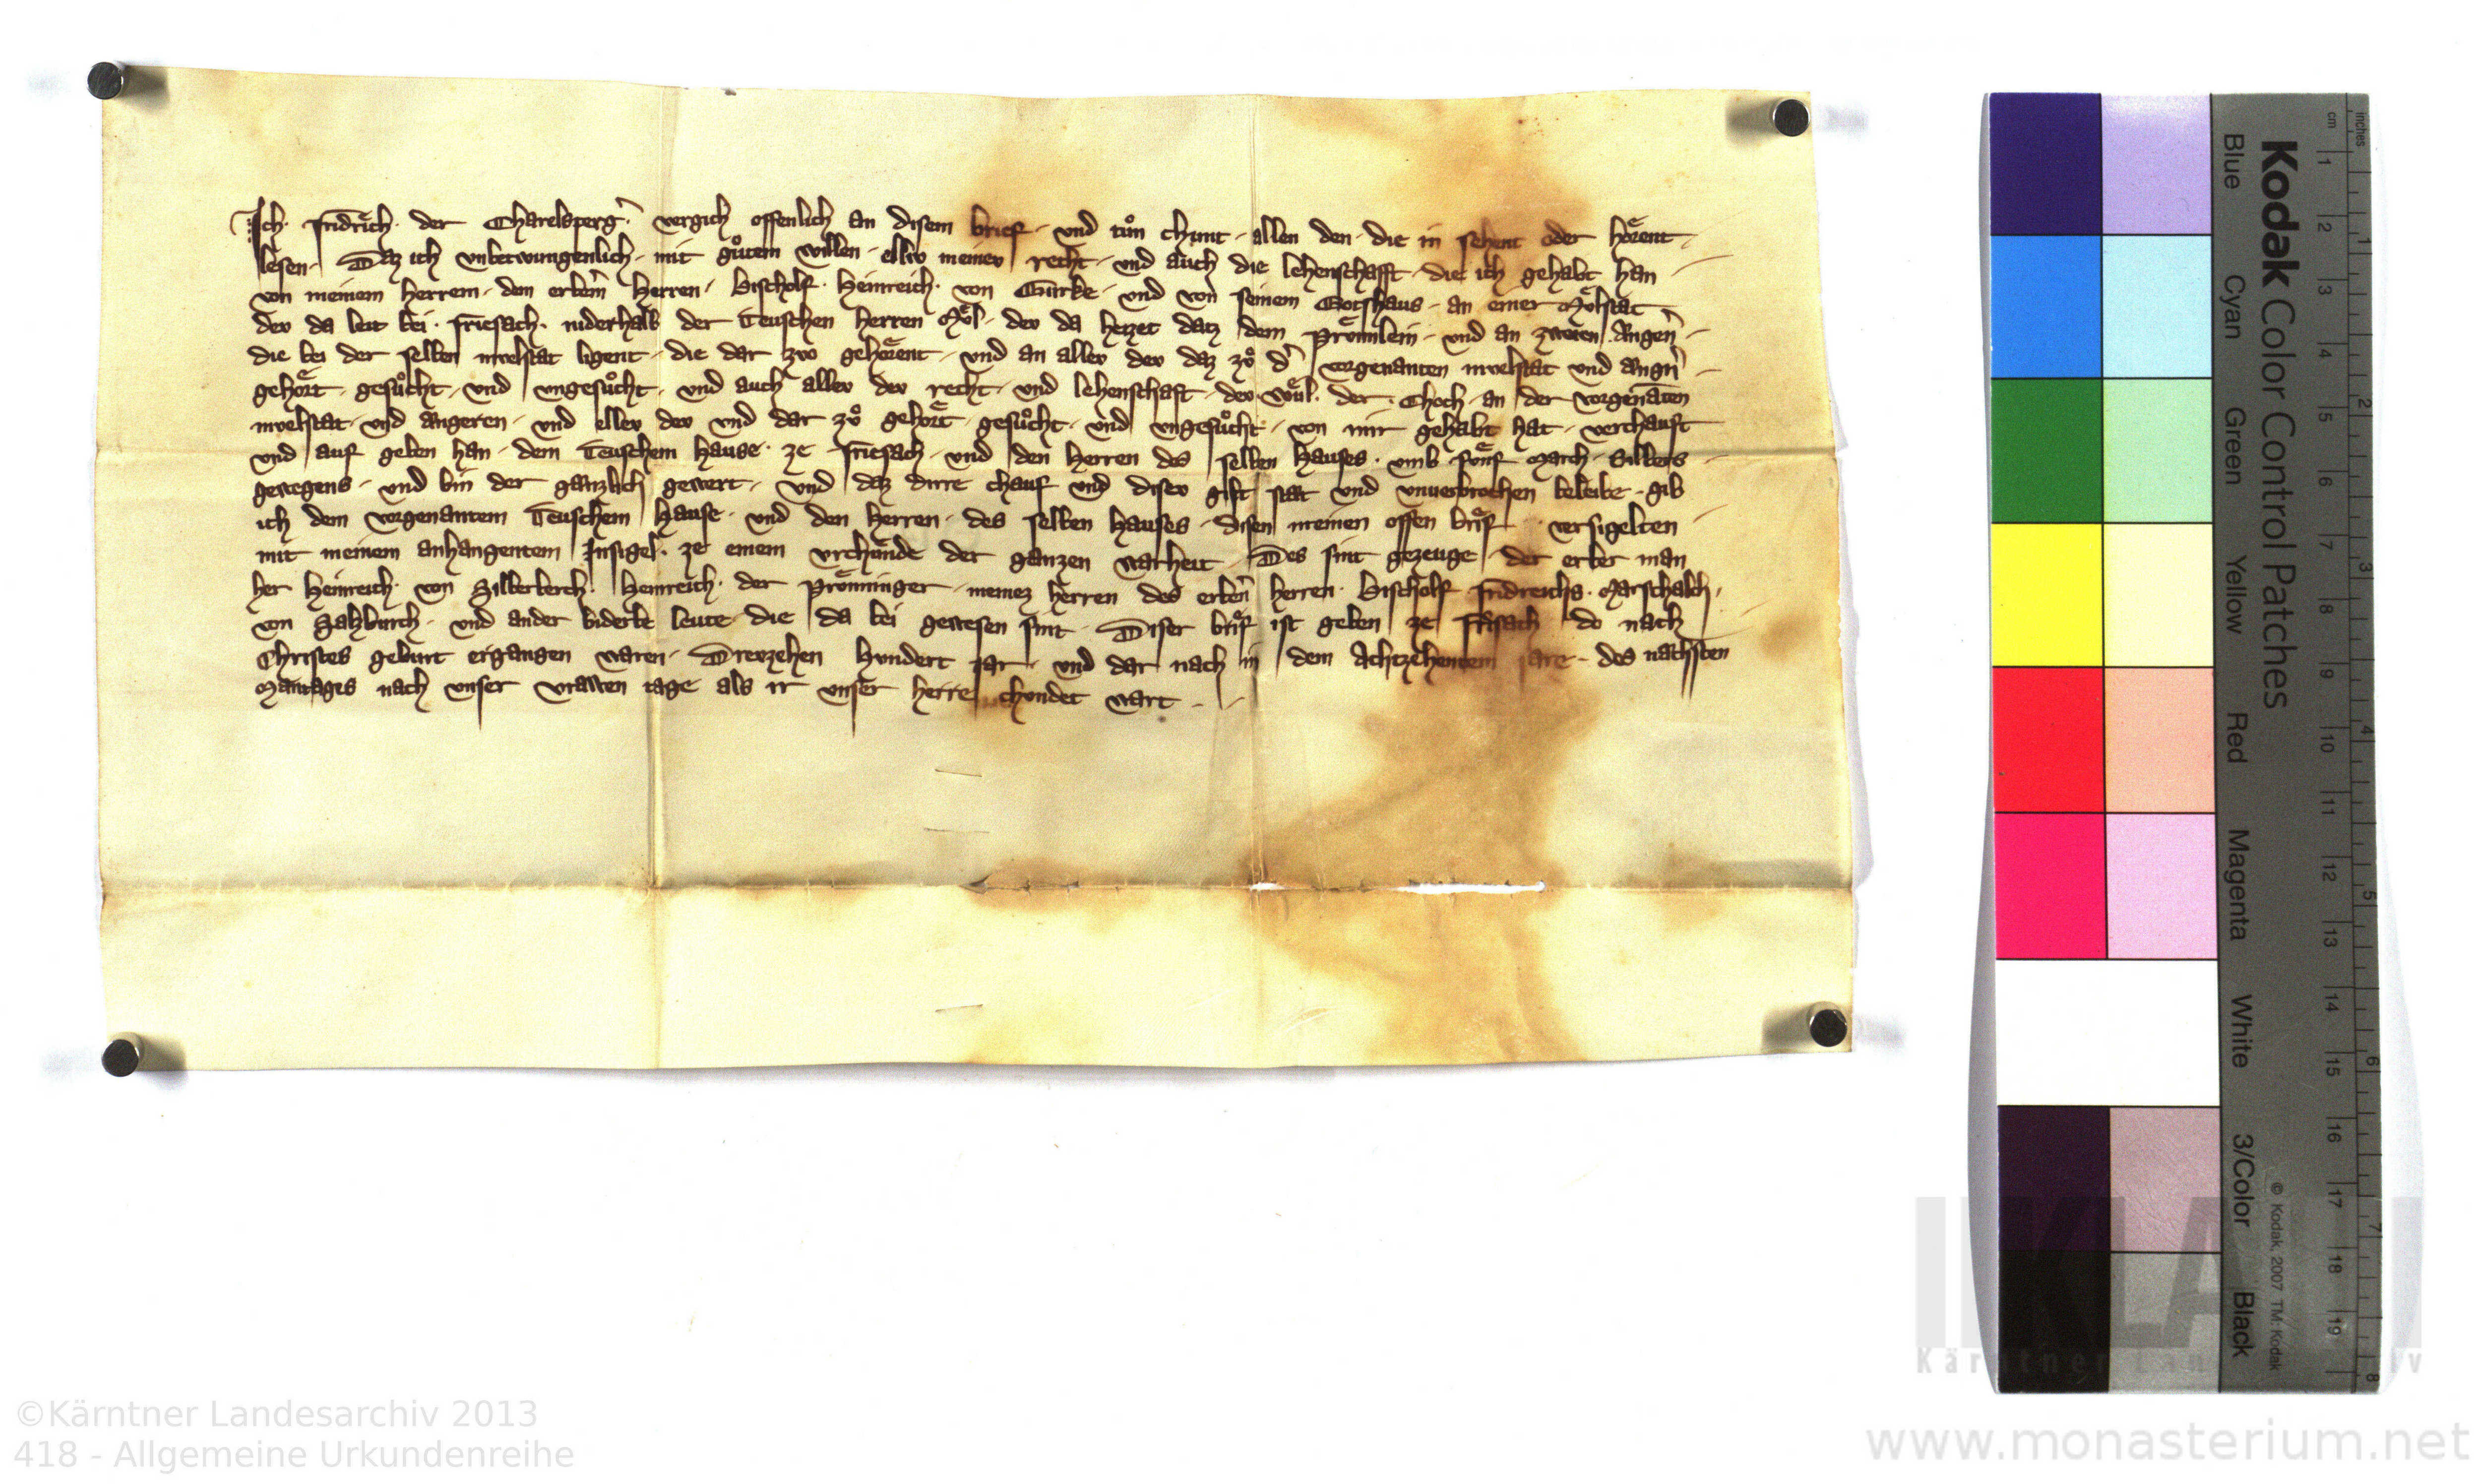 Ich · Fridrich · der Charelsperg̉ · vergich offenlich an disem brief · und tůn chunt · allen den · die in sehent oder hoͤrent ·
lesen · Daz ich unbetwungenlich · mit gůtem willen · ellev meinev recht · und auch die lehenschafft · die ich gehabt han
von meinem herrem · dem erbern̉ herren · Bischolf · Heinreich · von Gurke · und von seinem Gotshaus · an einer Muͤlstat
dev da leit bei · Friesach · niderhalb der Teuschen herren Muͤl · dev da heizet datz dem Pruͤnnlein · und an zwaien Angern̉ ·
die bei der selben mvelstat ligent · die dar zvo gehoͤrent · und an allev dev daz zů d̉ vorgenanten mvelstat und Angn̉ ·
gehoͤrt · gesůcht · und ungesůcht · und auch allev dev recht · und lehenschaft · der Choch · an der vorgenāten
mvelstat · und Angeren · und ellev dev und dar zů gehoͤrt · gesůcht · und ungesůcht · von mir gehabt hat · verchauft
und auf geben han · dem Teuschem hause · ze Friesach · und den herren des selben hauses · umb fuͤnf March · Silbers ·
gewegens · und bin der ganzlich gewert · und daz dirre chauf und disev gift stat und unverbrochen beleibe · gib
ich dem vorgenantem Teuschem hause · und den herren · des selben hauses · disen meinen offen brif · versigelten ·
mit meinem anhangentem Insigel · ze einem urchunde der ganzen warheit · Des sint gezeuge · der erber man
her Heinreich · von Silberberch · Heinreich · der Pruͤnninger · meinez herren des erbern̉ herren · Bischolf Fridreichs · Marschalch ·
von Salzburch · und ander biderbe leute · die da bei gewesen sint · Diser brif ist geben ze Frisach do nach
Christes geburt ergangen waren · Drevzehen hundert iar · und dar nach in dem Achtzehentem iare · des nachsten
Mantages nach unser vrawen tage als ir unser herre chundet wart ·
Kodak Color Control Patches
Blue Cyan Green Yellow Red Magenta White 3/Color Black
© Kodak, 2007 TM: Kodak
inches 1 2 3 4 5 6 7 8
cm 1 2 3 4 5 6 7 8 9 10 11 12 13 14 15 16 17 18 19
KLA
©Kärntner Landesarchiv 2013
418 - Allgemeine Urkundenreihe
www.monasterium.net